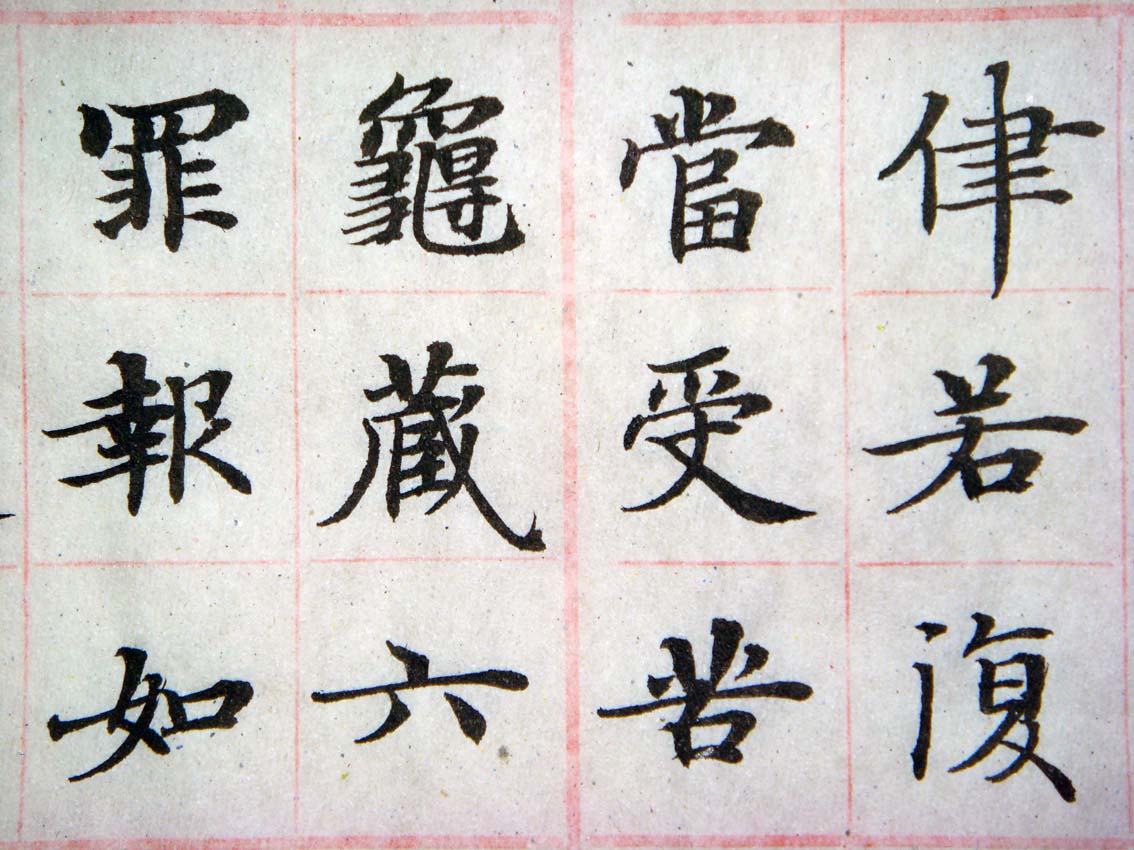 律若復
當受苦
龜藏六
罪報如